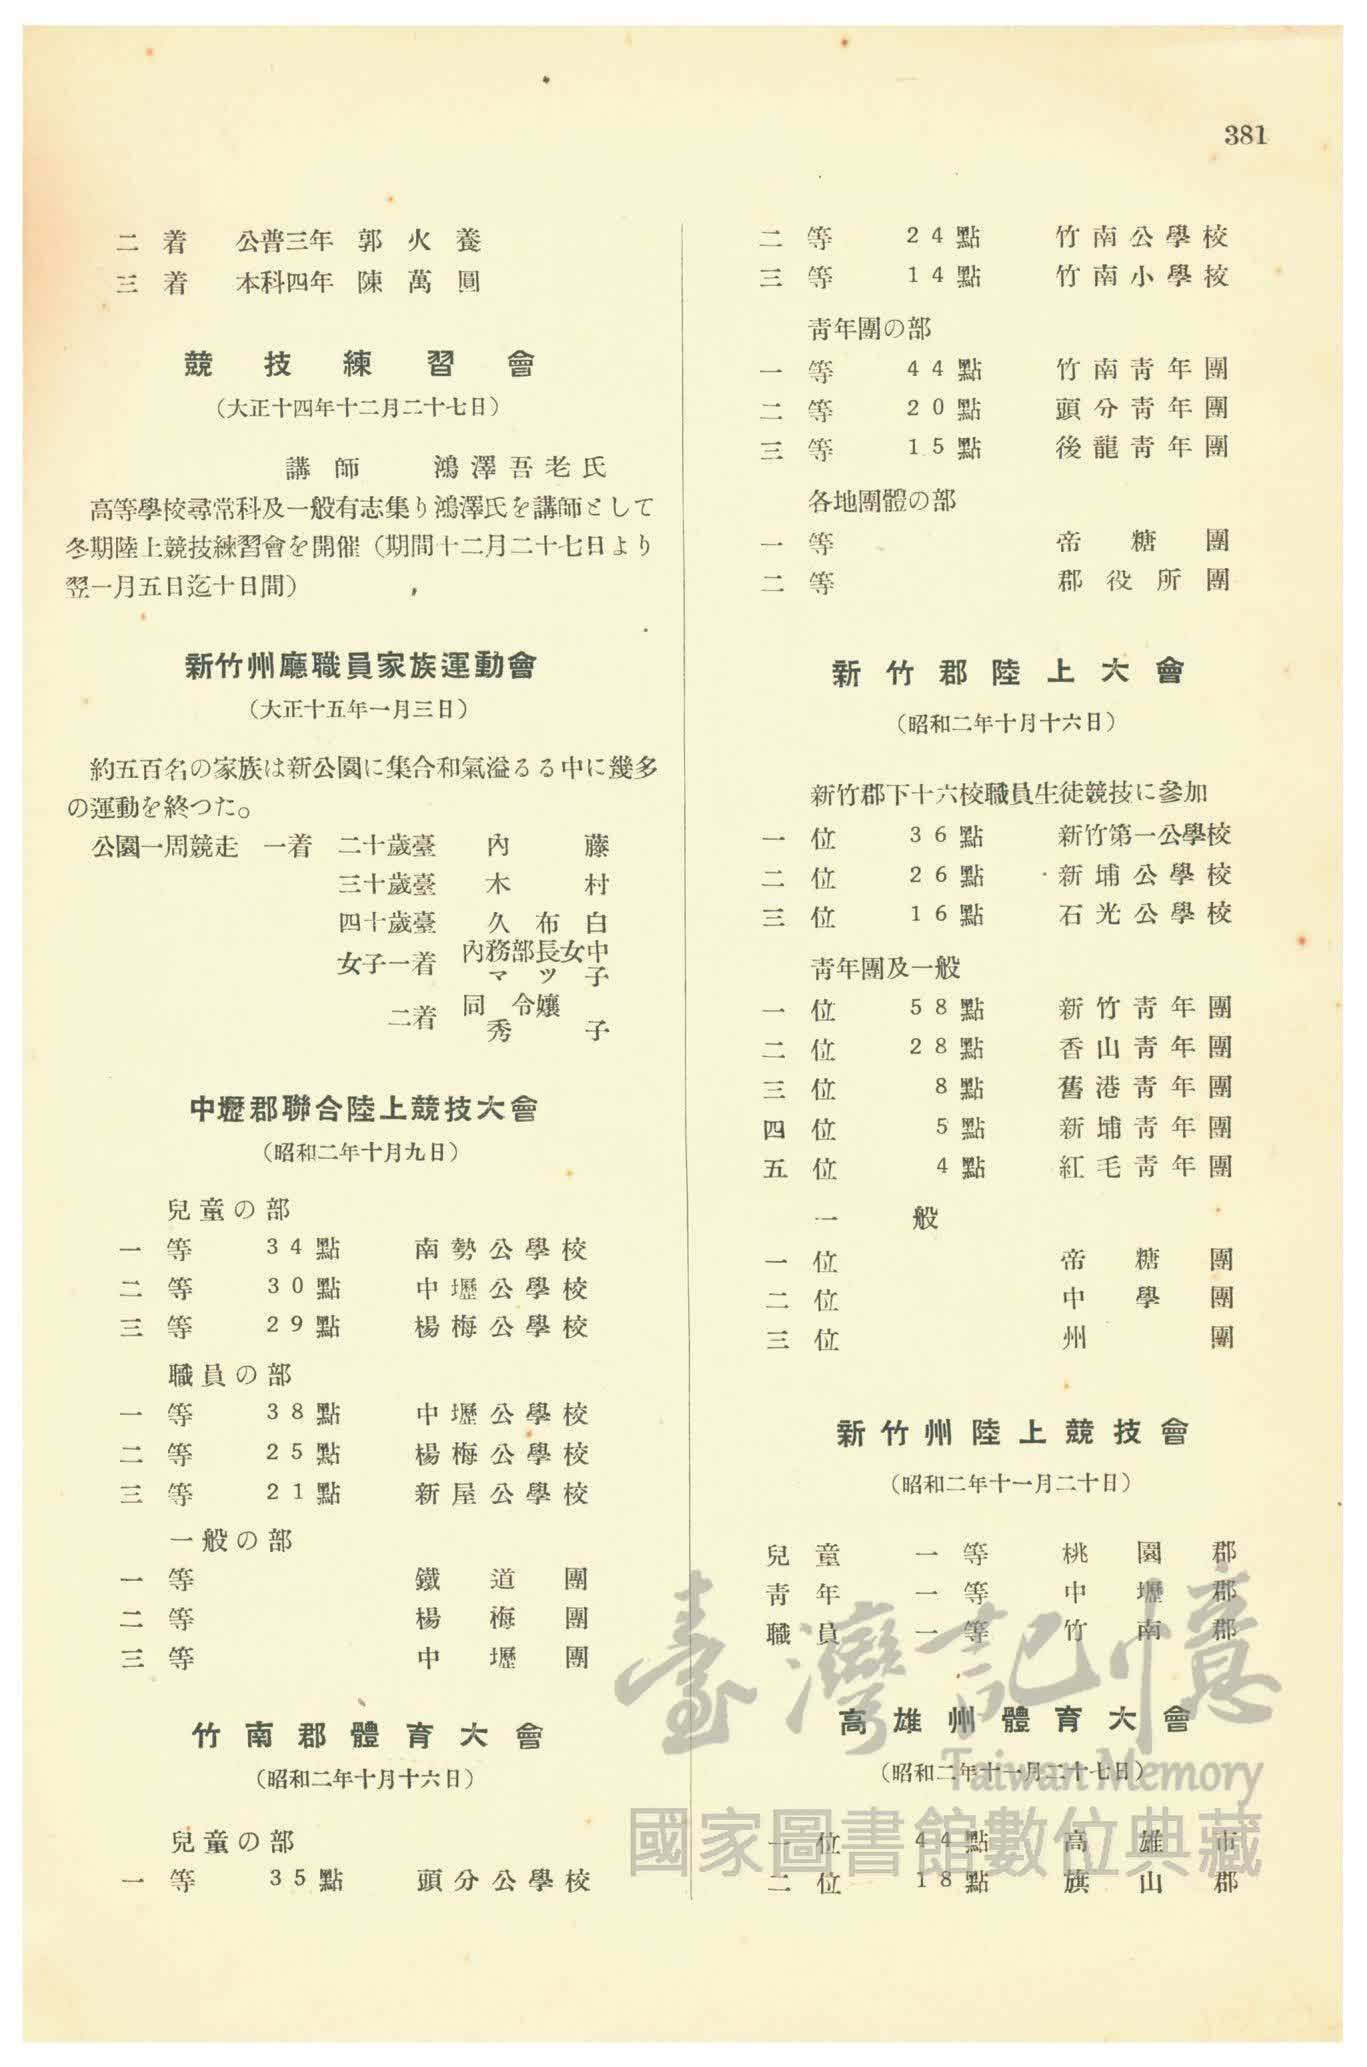 381
二着 公普三年 郭火養
三着 本科四年 陳萬圓
競技練習會
（大正十四年十二月二十七日）
講師 鴻澤吾老氏
高等學校尋常科及一般有志集り鴻澤氏を講師として
冬期陸上競技練習會を開催（期間十二月二十七日より
翌一月五日迄十日間）
新竹州廳職員家族運動會
（大正十五年一月三日）
約五百名の家族は新公園に集合和氣溢るる中に幾多
の運動を終つた。
公園一周競走 一着 二十歲臺 內藤
三十歲臺 木村
四十歲臺 久布白
女子一着 內務部長女中
マツ子
二着 同 令孃
秀子
中壢郡聯合陸上競技大會
（昭和二年十月九日）
兒童の部
一等 34點 南勢公學校
二等 30點 中壢公學校
三等 29點 楊梅公學校
職員の部
一等 38點 中壢公學校
二等 25點 楊梅公學校
三等 21點 新屋公學校
一般の部
一等 鐵道團
二等 楊梅團
三等 中壢團
竹南郡體育大會
（昭和二年十月十六日）
兒童の部
一等 35點 頭分公學校
二等 24點 竹南公學校
三等 14點 竹南小學校
靑年團の部
一等 44點 竹南靑年團
二等 20點 頭分靑年團
三等 15點 後龍靑年團
各地團體の部
一等 帝糖團
二等 郡役所團
新竹郡陸上大會
（昭和二年十月十六日）
新竹郡下十六校職員生徒競技に參加
一位 36點 新竹第一公學校
二位 26點 新埔公學校
三位 16點 石光公學校
靑年團及一般
一位 58點 新竹靑年團
二位 28點 香山靑年團
三位 8點 舊港靑年團
四位 5點 新埔靑年團
五位 4點 紅毛靑年團
一般
一位 帝糖團
二位 中學團
三位 州團
新竹州陸上競技會
（昭和二年十一月二十日）
兒童 一等 桃園郡
靑年 一等 中壢郡
職員 一等 竹南郡
高雄州體育大會
（昭和二年十一月二十七日）
一位 44點 高雄市
二位 18點 旗山郡
臺灣記憶
Taiwan Memory
國家圖書館數位典藏